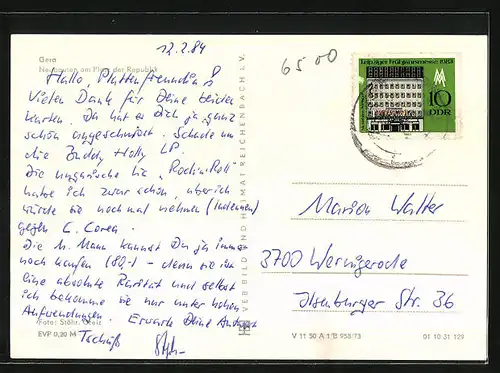 Gera
Neubauten am Platz der Republik
12.2.84
Hallo, Plattenfreundin!
Vielen Dank für Deine beiden
Karten. Da hat er Dich ja ganz
schön angeschmiert. Schade um
die Buddy Holly LP.
Die ungarische LP "Rock'n'Roll"
habe ich zwar schon, aber ich
würde sie noch mal nehmen
gegen C. Corea.
Die M. Mann kannst Du ja immer
noch kaufen (80,-) - denn sie ist
eine absolute Rarität und selbst
ich bekomme sie nur unter hohen
Aufwendungen. Erwarte Deine Antwort
Tschüß
Foto: Stöhr, Greiz
EVP 0,20 M
VEB BILD UND HEIMAT REICHENBACH I. V.
6500
Leipziger Frühjahrsmesse 1983
10
DDR
Marion Walter
3700 Wernigerode
Ilsenburger Str. 36
V 11 50 A 1/B 958/73
01 10 31 129